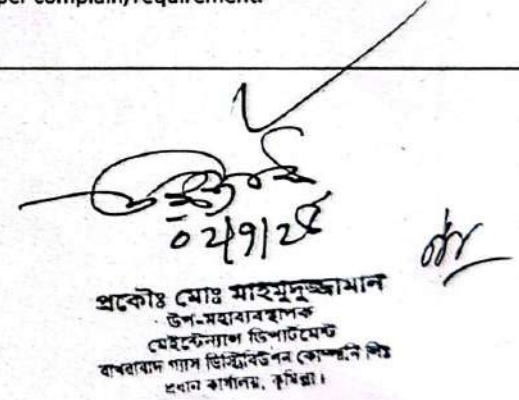 per complain/requirement.
০২/৭/২৫
প্রকৌঃ মোঃ মাহমুদুজ্জামান
উপ-মহাব্যবস্থাপক
মেইন্টেন্যান্স ডিপার্টমেন্ট
বাখরাবাদ গ্যাস ডিস্ট্রিবিউশন কোম্পানি লিঃ
প্রধান কার্যালয়, কুমিল্লা।